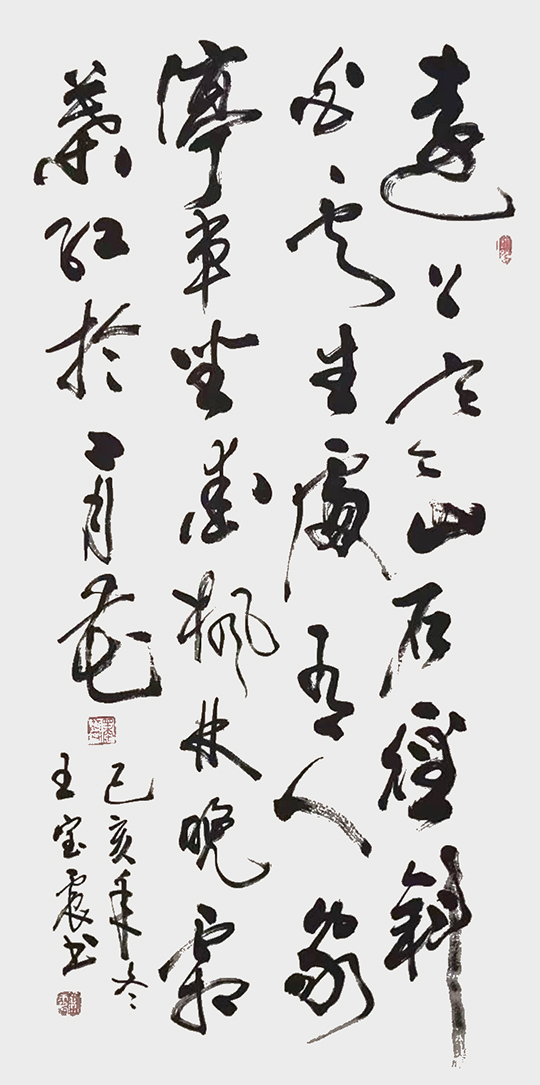 遠上寒山石徑斜
白雲生處有人家
停車坐愛楓林晚霜
葉紅於二月花
己亥年冬
王宝震书